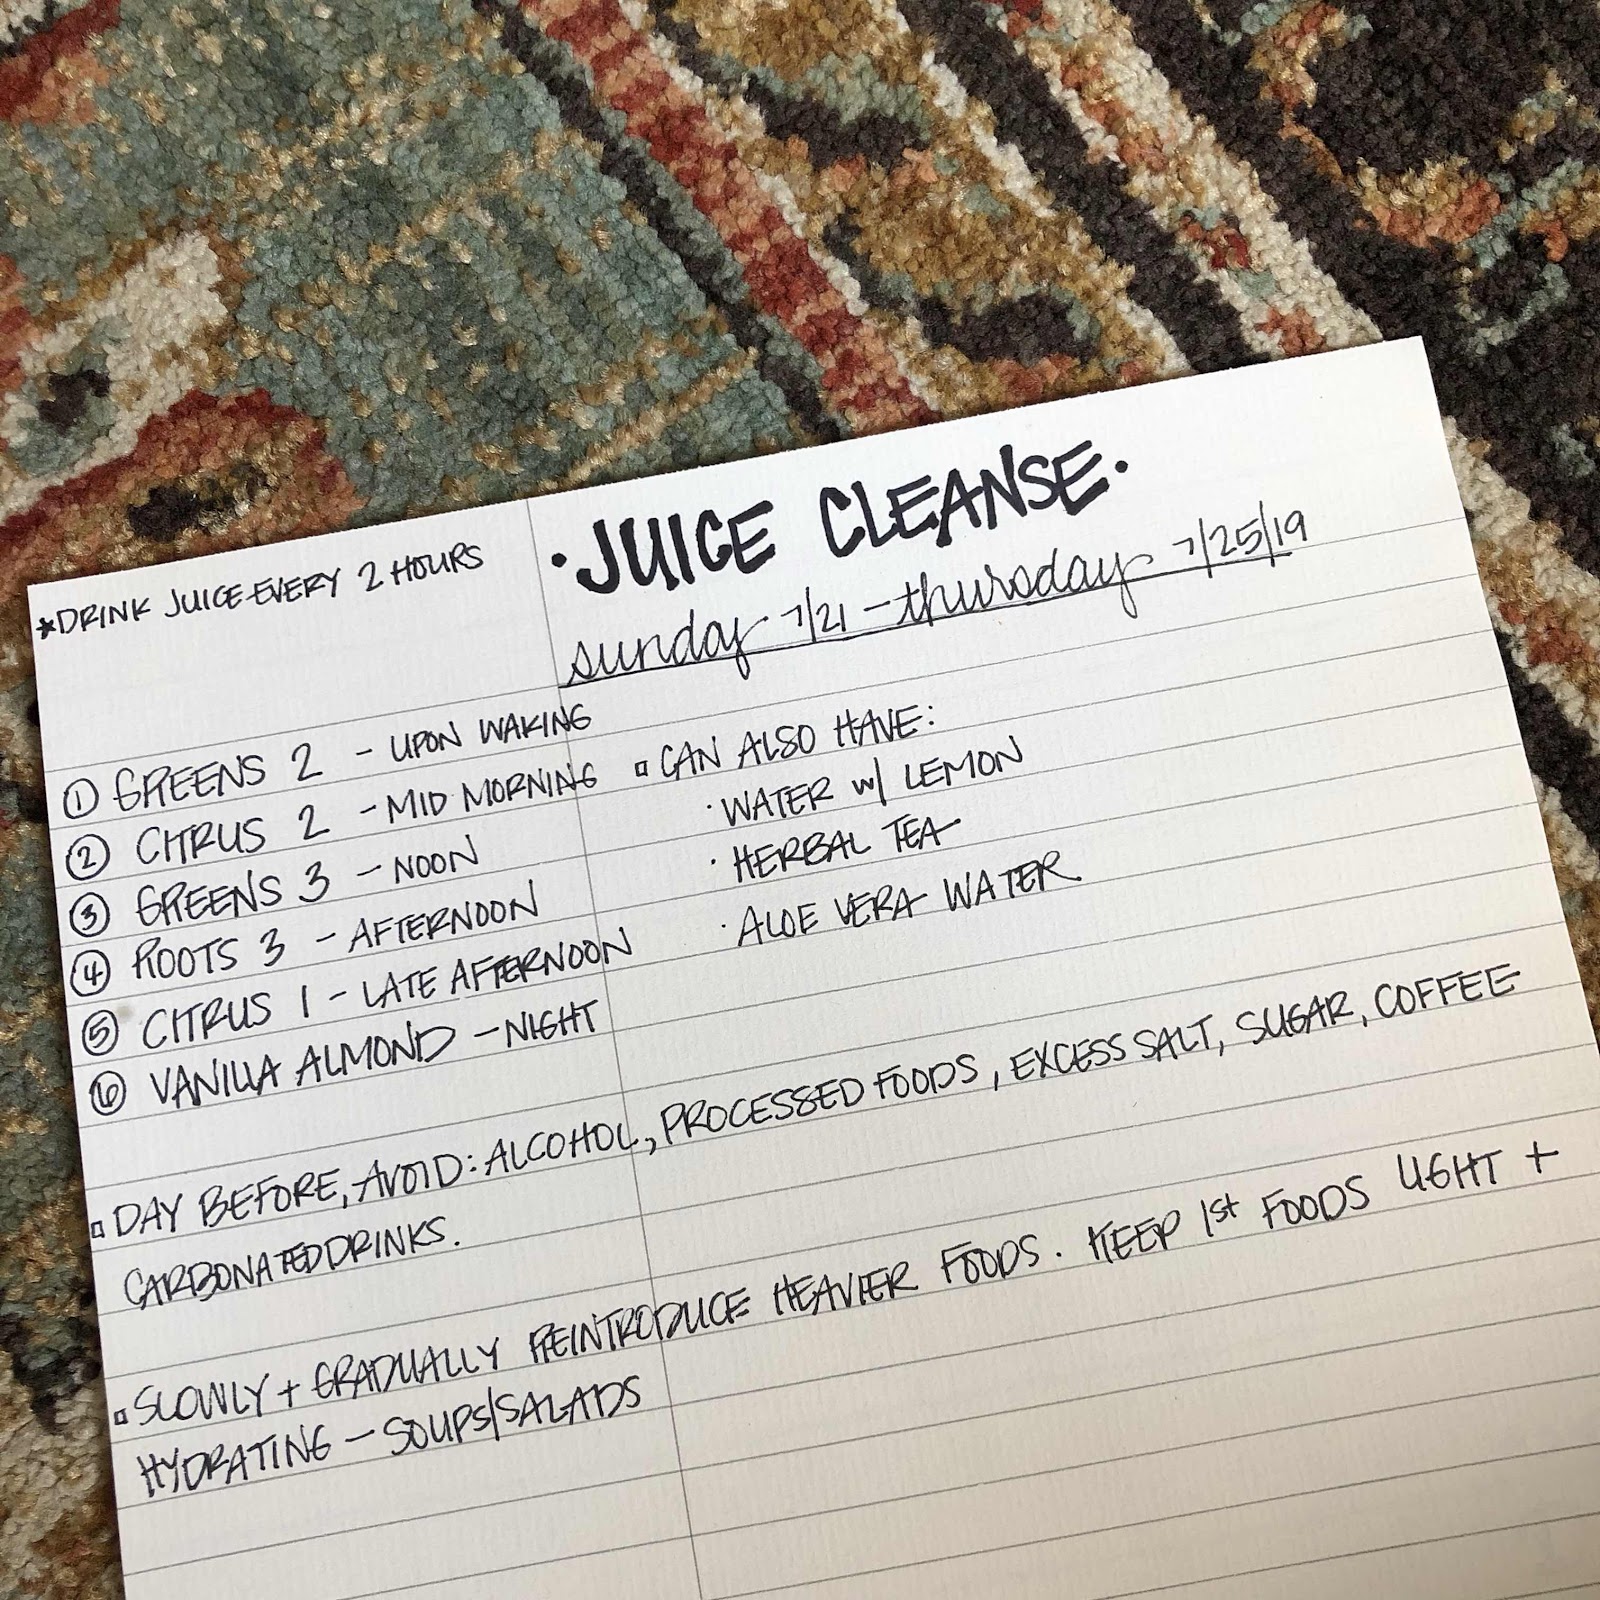 ·JUICE CLEANSE·
sunday 7/21 - thursday 7/25/19
*DRINK JUICE EVERY 2 HOURS
① GREENS 2 - UPON WAKING
② CITRUS 2 - MID MORNING
③ GREENS 3 - NOON
④ ROOTS 3 - AFTERNOON
⑤ CITRUS 1 - LATE AFTERNOON
⑥ VANILLA ALMOND - NIGHT
▫ CAN ALSO HAVE:
· WATER w/ LEMON
· HERBAL TEA
· ALOE VERA WATER
▫ DAY BEFORE, AVOID: ALCOHOL, PROCESSED FOODS, EXCESS SALT, SUGAR, COFFEE
CARBONATED DRINKS.
▫ SLOWLY + GRADUALLY REINTRODUCE HEAVIER FOODS. KEEP 1st FOODS LIGHT +
HYDRATING - SOUPS/SALADS